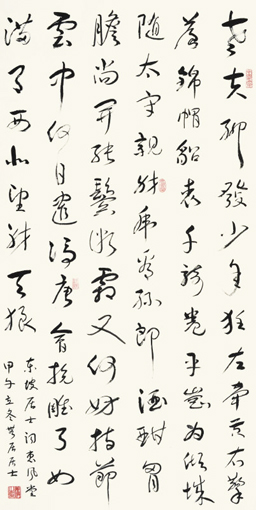 老夫聊發少年狂左牽黃右擎
蒼錦帽貂裘千騎卷平崗為傾城
隨太守親射虎看孫郎酒酣胸
膽尚開張鬢微霜又何妨持節
雲中何日遣馮唐會挽雕弓如
滿月西北望射天狼
東坡居士詞惠風堂
甲午立冬居居士